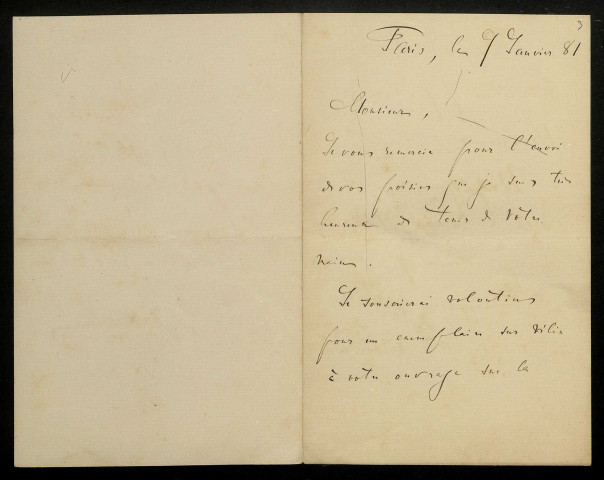 3
Paris, le 9 Janvier 81
Monsieur,
Je vous remercie pour l'envoi
de vos poésies que je suis très
heureux de tenir de vôtre
main.
Je souscrirai volontiers
pour un exemplaire sur vélin
à votre ouvrage sur la